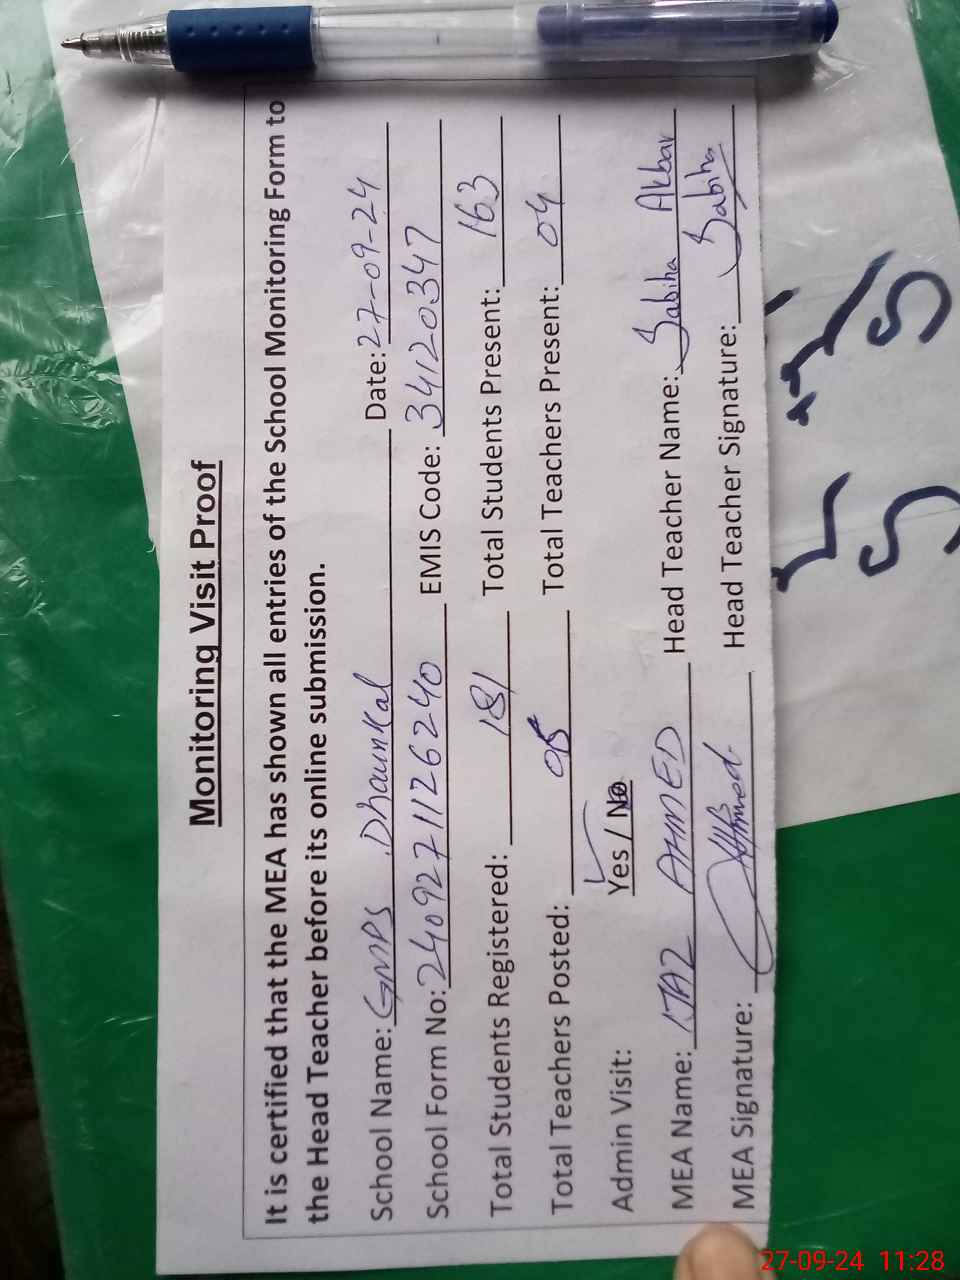 Monitoring Visit Proof
It is certified that the MEA has shown all entries of the School Monitoring Form to
the Head Teacher before its online submission.
School Name: GMPS Dhaunkal Date: 27-09-24
School Form No: 2409271126240 EMIS Code: 34120347
Total Students Registered: 181 Total Students Present: 163
Total Teachers Posted: 05 Total Teachers Present: 04
Admin Visit: Yes / No
MEA Name: IJAZ AHMED Head Teacher Name: Sabiha Akbar
MEA Signature: Ahmed Head Teacher Signature: Sabiha
27-09-24 11:28